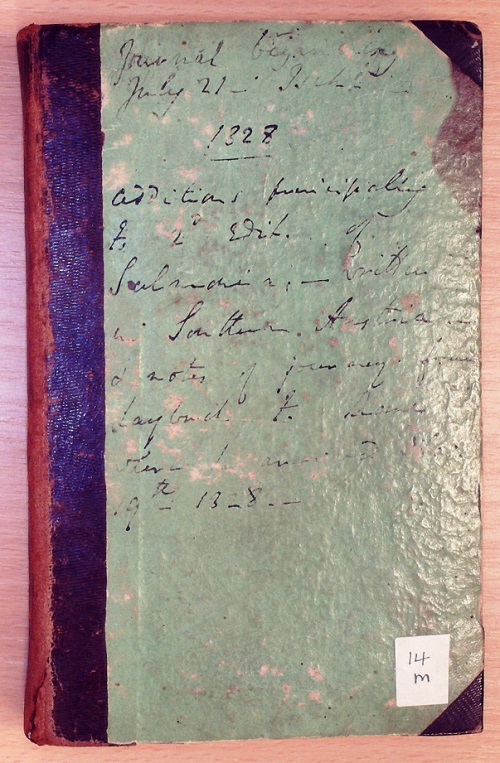 Journal beginning
July 21 - Ischl -
1828
additions principally
to 2d Edit. of
Salmonia; - Written
in Southern Austria -
& notes of journey from
Laybach to Rome
where I arrived Nov.
19th 1828. -
14
m